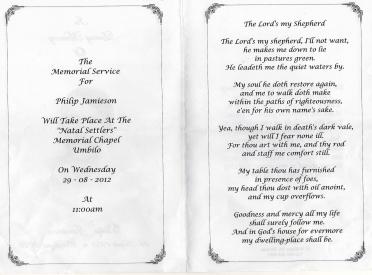 The
Memorial Service
For
Philip Jamieson
Will Take Place At The
"Natal Settlers"
Memorial Chapel
Umbilo
On Wednesday
29 - 08 - 2012
At
11:00am
The Lord's my Shepherd
The Lord's my shepherd, I'll not want,
he makes me down to lie
in pastures green.
He leadeth me the quiet waters by.
My soul he doth restore again,
and me to walk doth make
within the paths of righteousness,
e'en for his own name's sake.
Yea, though I walk in death's dark vale,
yet will I fear none ill.
For thou art with me, and thy rod
and staff me comfort still.
My table thou has furnished
in presence of foes,
my head thou dost with oil anoint,
and my cup overflows.
Goodness and mercy all my life
shall surely follow me.
And in God's house for evermore
my dwelling-place shall be.